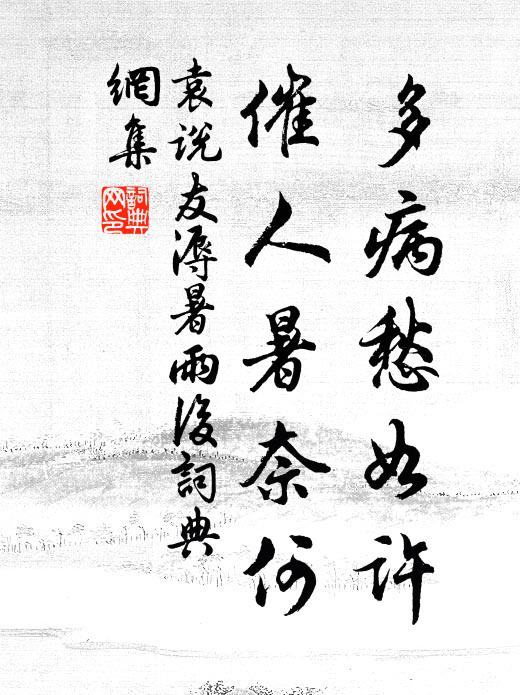 多病愁如許
催人暑奈何
袁說友溽暑雨後詞典
網集
詞典網印